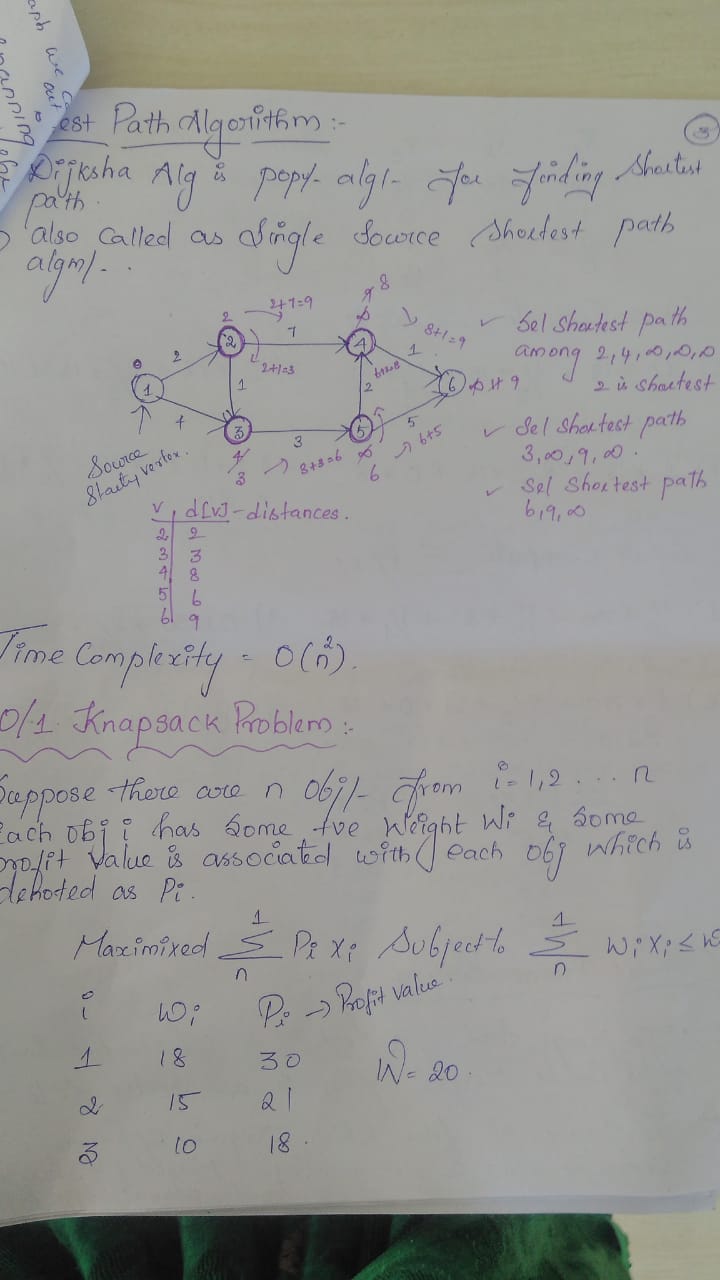 aph we ca
out
panning
est Path Algorithm :-
3
Dijksha Alg is popy- algl- for finding Shortest
path.
also Called as Single Source Shortest path
algm/-.
2+7=9
8
2
7
8+1=9
2
2
4
1
0
2+1=3
6+2=8
1
1
2
6
9
4
3
3
5
5
4
3
3+3=6
6
6+5
Source
Starty vertex.
✓ Sel Shortest path
among 2,4,∞,∞,∞
2 is Shortest
✓ Sel Shortest path
3,∞,9,∞.
✓ Sel Shortest path
6,9,∞
v d[v] - distances.
2 2
3 3
4 8
5 6
6 9
Time Complexity = O(n²).
0/1 Knapsack Problem :-
Suppose there are n Obj/- from i=1,2 ... n
Each obj i has Some +ve Weight Wi & Some
profit Value is associated with each obj which is
denoted as Pi.
Maximixed 1 Σ n Pi xi Subject to 1 Σ n Wi Xi ≤ W
i Wi Pi → Profit value.
1 18 30 W = 20.
2 15 21
3 10 18.